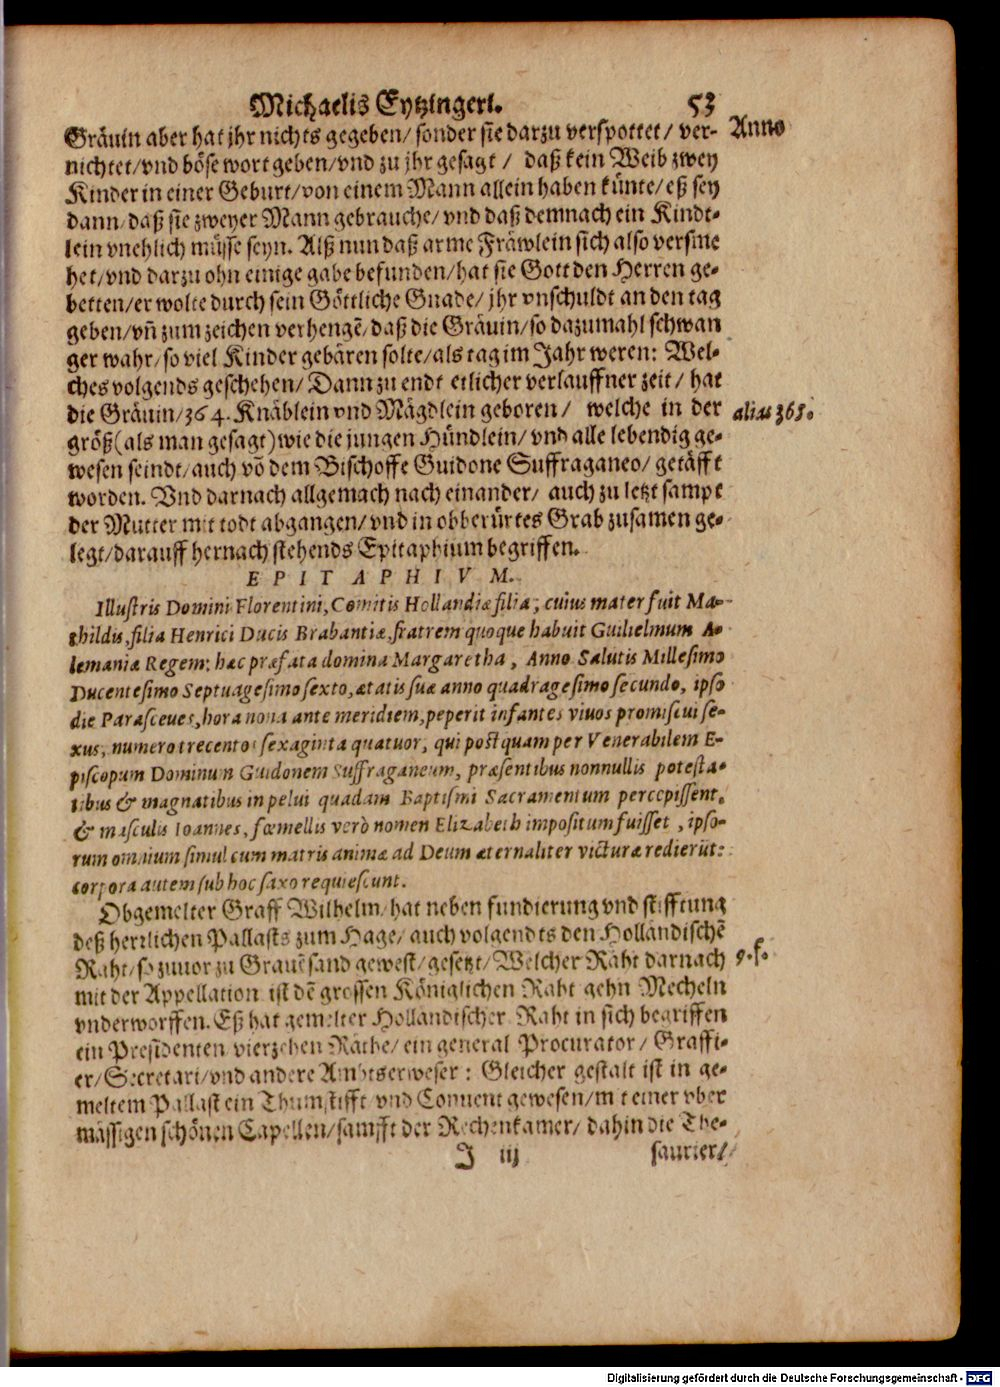 Michaelis Eytzingeri. 53
Gräuin aber hat jhr nichts gegeben/ sonder sie darzu verspottet/ ver- Anno
nichtet/vnd böse wort geben/vnd zu jhr gesagt / daß kein Weib zwey
Kinder in einer Geburt/von einem Mann allein haben künte/eß sey
dann/daß sie zweyer Mann gebrauche/vnd daß demnach ein Kindt-
lein vnehlich müsse seyn. Alß nun daß arme Fräwlein sich also versme
het/vnd darzu ohn einige gabe befunden/hat sie Gott den Herren ge-
betten/er wolte durch sein Göttliche Gnade/ jhr vnschuldt an den tag
geben/vñ zum zeichen verhengẽ/daß die Gräuin/so dazumahl schwan
ger wahr/so viel Kinder gebären solte/als tag im Jahr weren: Wel-
ches volgends geschehen/Dann zu endt etlicher verlauffner zeit/ hat
die Gräuin/364. Knäblein vnd Mägdlein geboren/ welche in der alias 365.
größ(als man gesagt)wie die jungen Hündlein/vnd alle lebendig ge-
wesen seindt/auch võ dem Bischoffe Guidone Suffraganeo/ getäfft
worden. Vnd darnach allgemach nach einander/ auch zu letzt sampt
der Mutter mit todt abgangen/vnd in obberürtes Grab zusamen ge-
legt/darauff hernach stehends Epitaphium begriffen.
EPITAPHIVM.
Illustris Domini Florentini, Comitis Hollandiæ filia, cuius mater fuit Ma-
thildis, filia Henrici Ducis Brabantiæ, fratrem quoque habuit Guilielmum A-
lemaniæ Regem: hæc præfata domina Margaretha, Anno Salutis Millesimo
Ducentesimo Septuagesimo sexto, ætatis suæ anno quadragesimo secundo, ipso
die Parasceues, hora nona ante meridiem, peperit infantes viuos promiscui se-
xus, numero trecentos sexaginta quatuor, qui postquam per Venerabilem E-
piscopum Dominum Guidonem Suffraganeum, præsentibus nonnullis potesta-
tibus & magnatibus in pelui quadam Baptismi Sacramentum percepissent,
& masculis Ioannes, fœmellis verò nomen Elizabeth impositum fuisset, ipso-
rum omnium simul cum matris animæ ad Deum æternaliter victuræ redierũt:
corpora autem sub hoc saxo requiescunt.
Obgemelter Graff Wilhelm/hat neben fundierung vnd stifftung
deß herrlichen Pallasts zum Hage/ auch volgendts den Holländischẽ
Raht/so zuuor zu Grauẽsand gewest/gesetzt/Welcher Räht darnach 9.f.
mit der Appellation ist dẽ grossen Königlichen Raht gehn Mecheln
vnderworffen. Eß hat gemelter Holländischer Raht in sich begriffen
ein Presidenten vierzehen Räthe/ ein general Procurator/ Graffi-
er/Secretari/vnd andere Ambtserweser: Gleicher gestalt ist in ge-
meltem Pallast ein Thumstifft vnd Conuent gewesen/mit einer vber
mässigen schönen Capellen/sampt der Rechenkamer/ dahin die The-
J iij saurier/
Digitalisierung gefördert durch die Deutsche Forschungsgemeinschaft - DFG